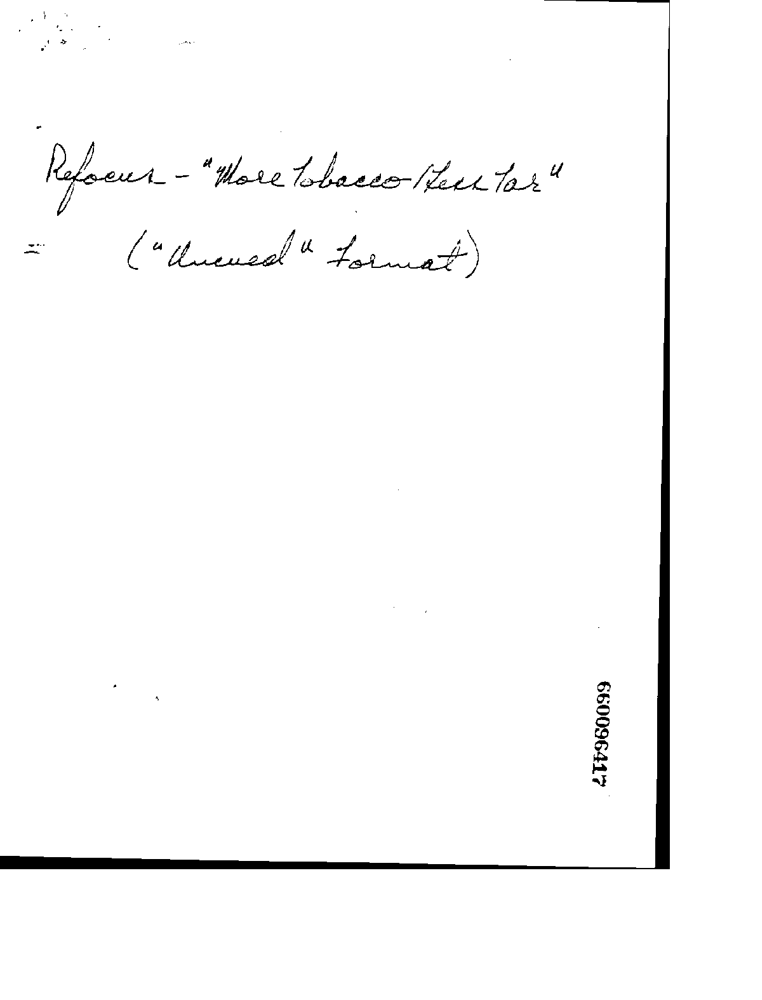 Refocus - "More Tobacco/Less Tar"
= ("Uncued" Format)
660096417